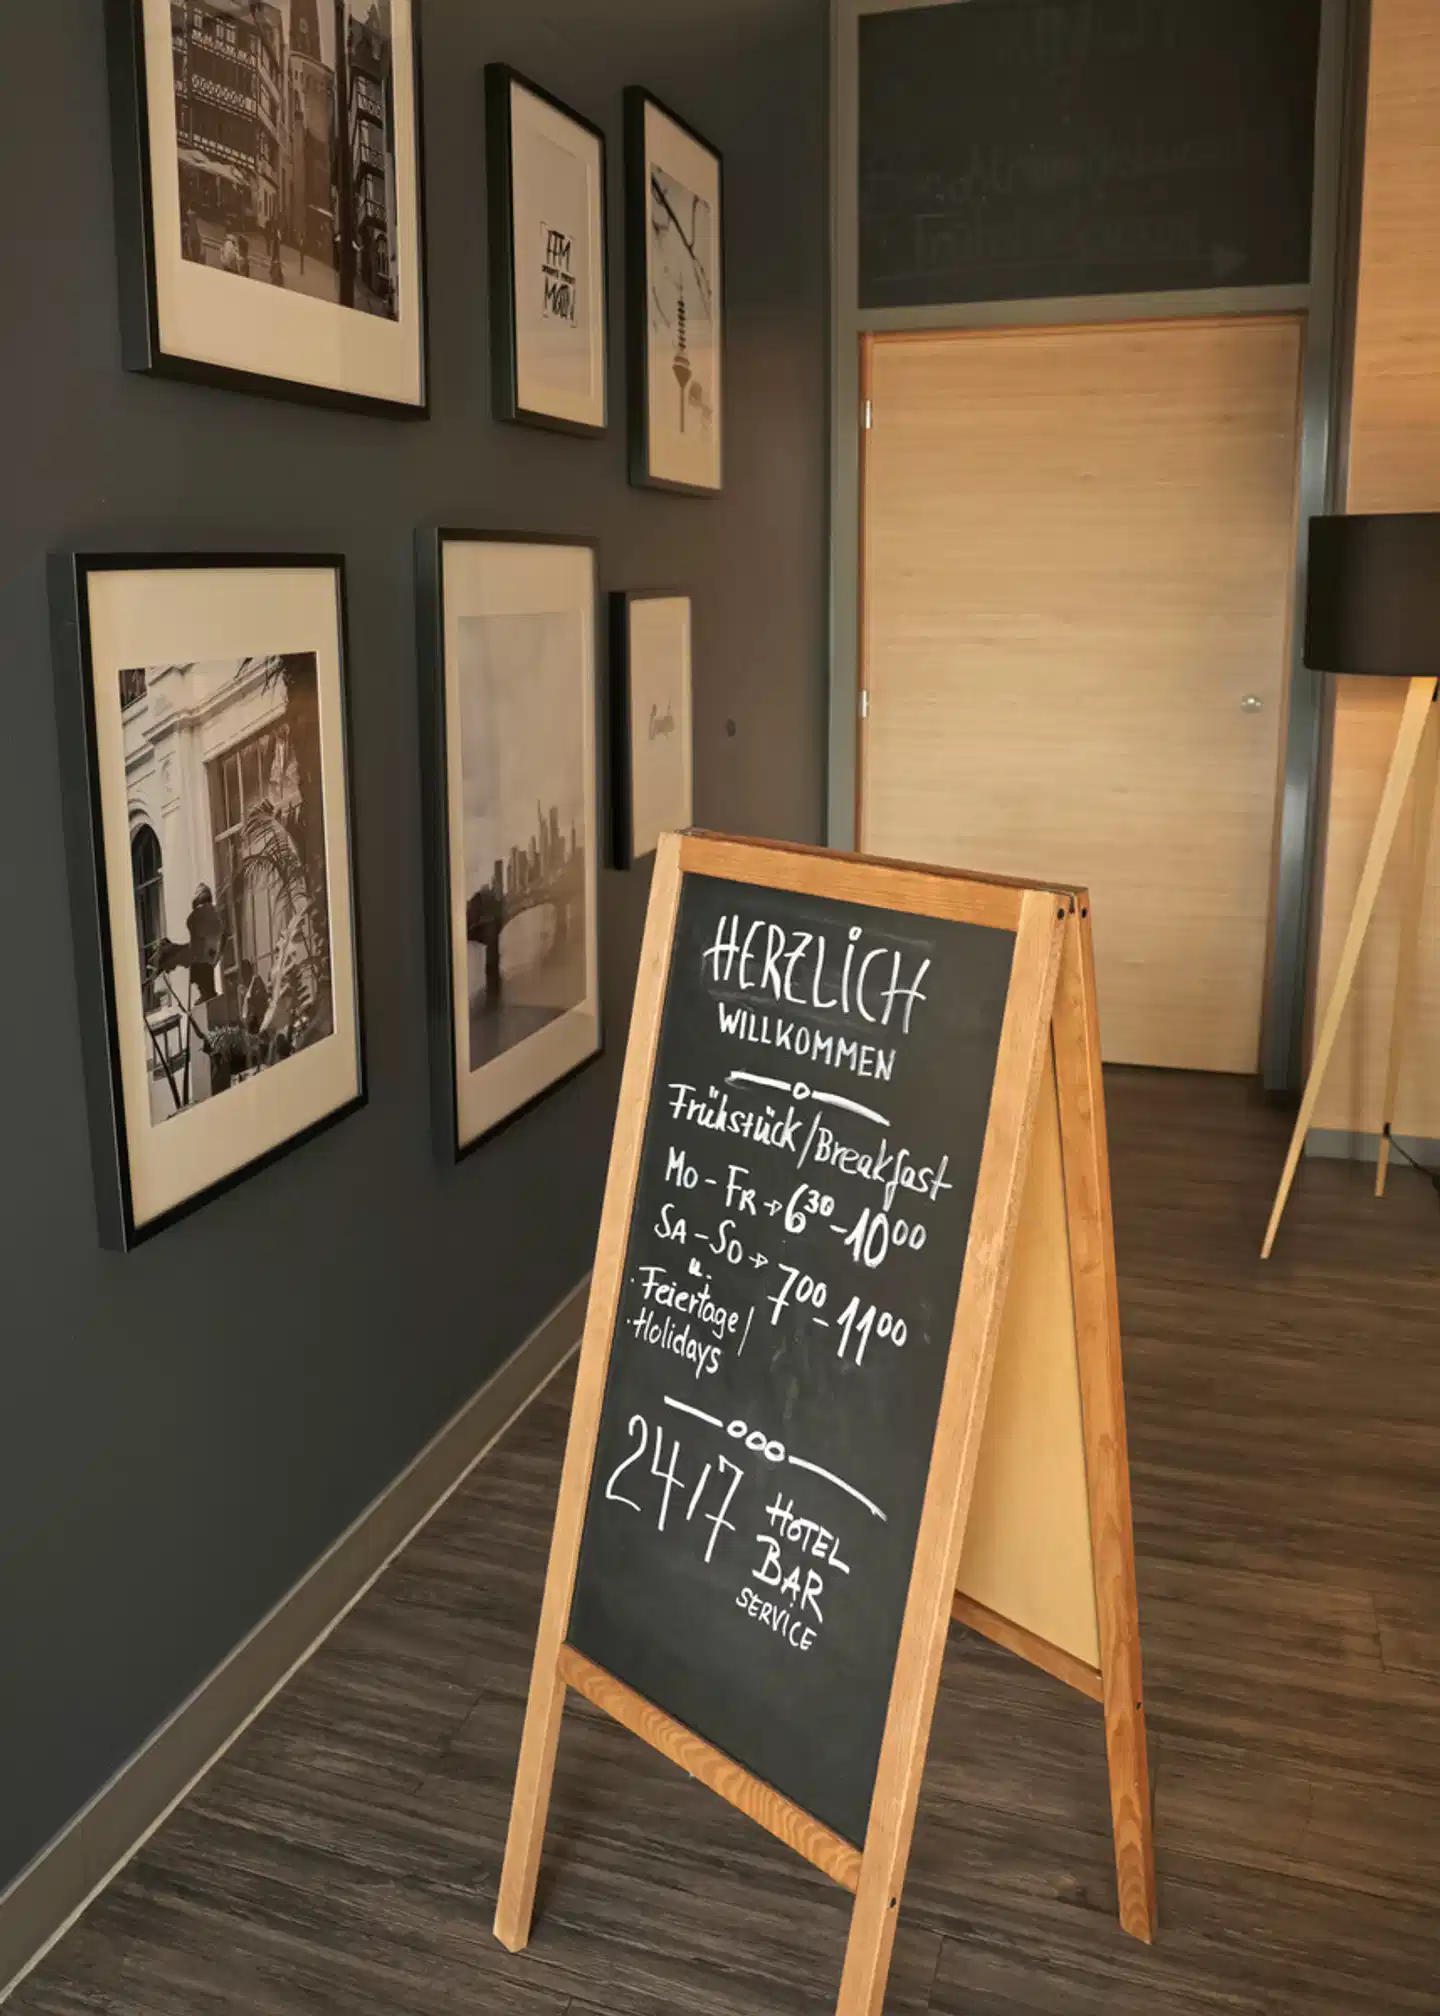 HERZLICH
WILLKOMMEN
Frühstück/Breakfast
Mo - Fr → 6³⁰ - 10⁰⁰
Sa - So → 7⁰⁰ - 11⁰⁰
u.
Feiertage/
Holidays
24/7 HOTEL
BAR
SERVICE
FFM